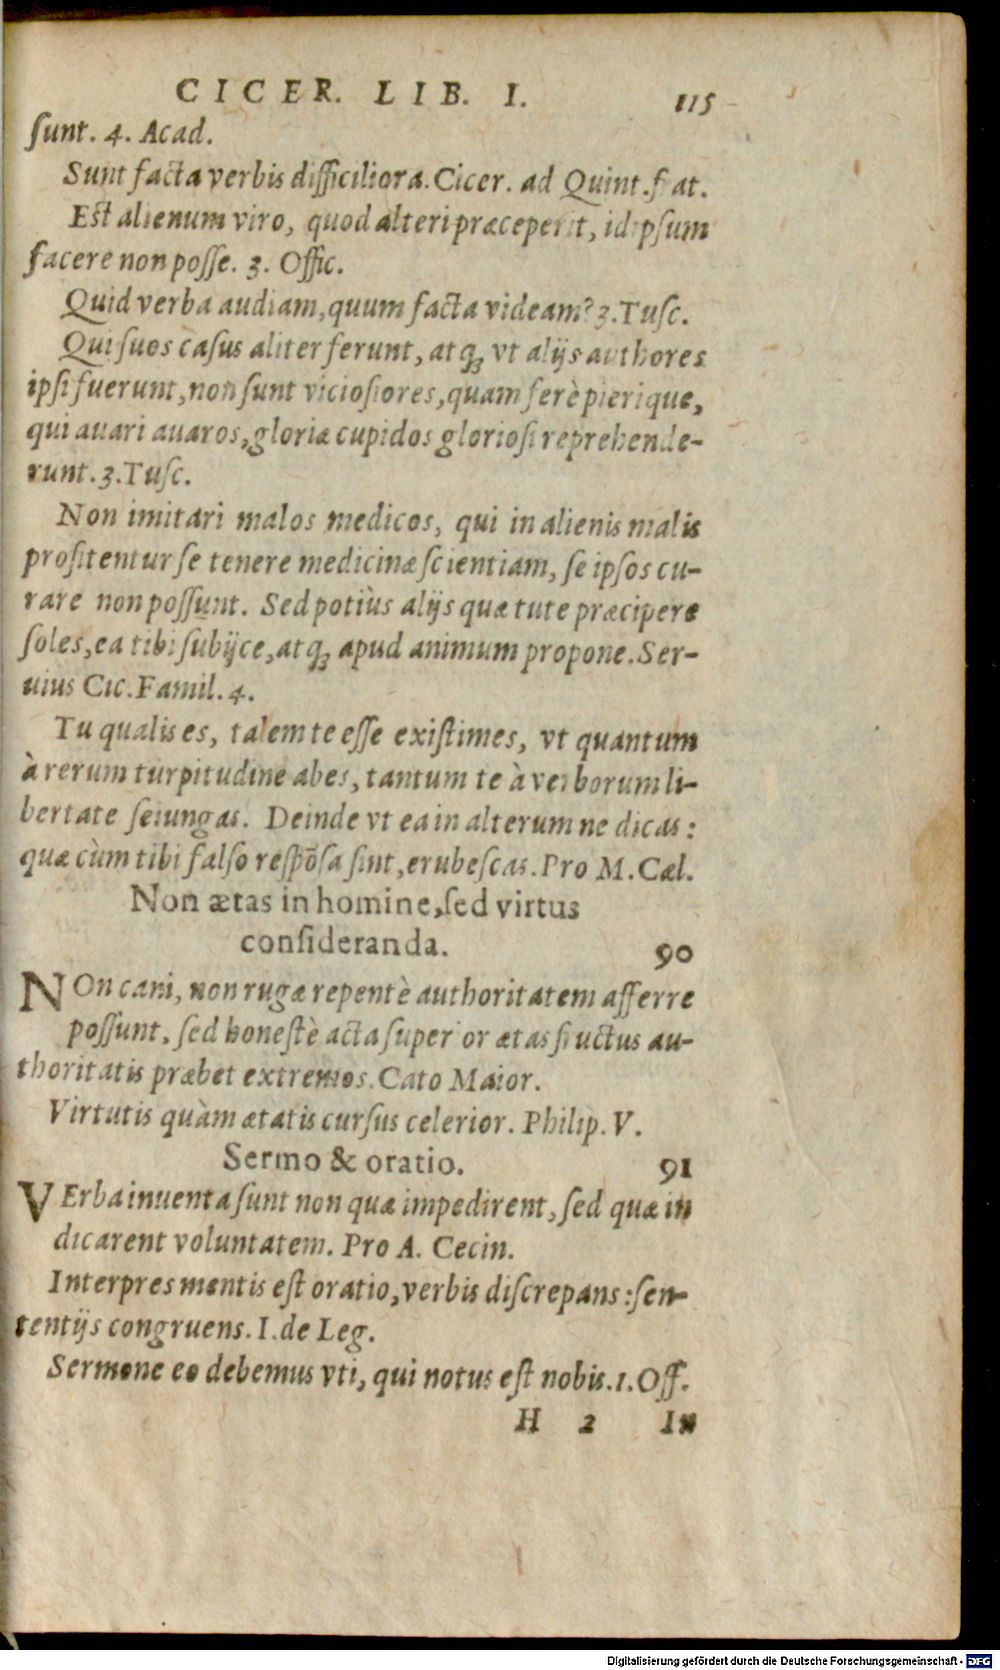 CICER. LIB. I. 115
ſunt. 4. Acad.
Sunt facta verbis difficiliora. Cicer. ad Quint. frat.
Eſt alienum viro, quod alteri præceperit, id ipſum
facere non poſſe. 3. Offic.
Quid verba audiam, quum facta videam? 3. Tuſc.
Qui ſuos caſus aliter ferunt, atq; vt alijs authores
ipſi fuerunt, non ſunt vicioſiores, quam ferè plerique,
qui auari auaros, gloriæ cupidos glorioſi reprehende-
runt. 3. Tuſc.
Non imitari malos medicos, qui in alienis malis
profitentur ſe tenere medicinæ ſcientiam, ſe ipſos cu-
rare non poſſunt. Sed potiùs alijs quæ tute præcipere
ſoles, ea tibi ſubijce, atq; apud animum propone. Ser-
uius Cic. Famil. 4.
Tu qualis es, talem te eſſe exiſtimes, vt quantum
à rerum turpitudine abes, tantum te à verborum li-
bertate ſeiungas. Deinde vt ea in alterum ne dicas:
quæ cùm tibi falſo reſpõſa ſint, erubeſcas. Pro M. Cæl.
Non ætas in homine, ſed virtus
conſideranda. 90
NOn cani, non rugæ repentè authoritatem afferre
poſſunt, ſed honeſtè acta ſuperior ætas fructus au-
thoritatis præbet extremos. Cato Maior.
Virtutis quàm ætatis curſus celerior. Philip. V.
Sermo & oratio. 91
VErba inuenta ſunt non quæ impedirent, ſed quæ in
dicarent voluntatem. Pro A. Cecin.
Interpres mentis eſt oratio, verbis diſcrepans: ſen-
tentijs congruens. I. de Leg.
Sermone eo debemus vti, qui notus eſt nobis. 1. Off.
H 2 In
Digitalisierung gefördert durch die Deutsche Forschungsgemeinschaft - DFG